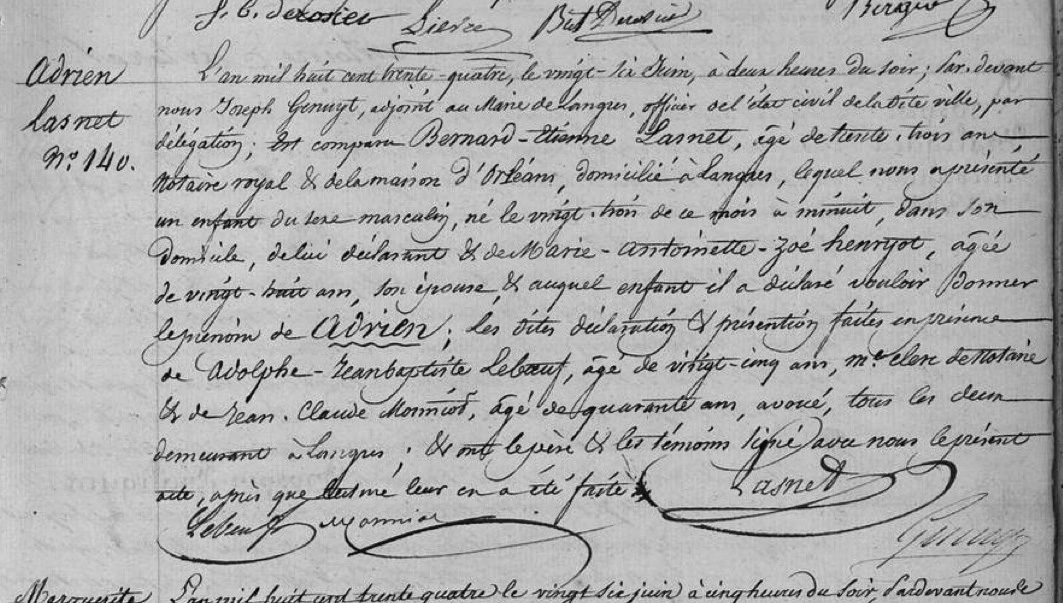 J. B. derosier Lierre Bte Derosier
Adrien
Lasnet
N.° 140.
L'an mil huit cent trente-quatre, le vingt-six Juin, à deux heures du soir; Par-devant
nous Joseph Genuyt, adjoint au Maire de Langres, officier de l'état civil de la dite ville, par
délégation; Est comparu Bernard-Etienne Lasnet, âgé de trente-trois ans
Notaire royal & de la maison d'Orléans, domicilié à Langres, lequel nous a présenté
un enfant du sexe masculin, né le vingt-trois de ce mois à minuit, dans son
domicile, de lui déclarant & de Marie-Antoinette-Zoé henryot, âgée
de vingt-huit ans, son épouse, & auquel enfant il a déclaré vouloir donner
le prénom de Adrien; Les dites déclaration & présention faites en présence
de Adolphe-Jean baptiste Lebœuf, âgé de vingt-cinq ans, me. clerc de Notaire
& de Jean-Claude Monniot, âgé de quarante ans, avoué, tous les deux
demeurant à Langres; & ont le père & les témoins signé avec nous le présent
acte, après que lecture leur en a été faite. Lasnet
Lebeuf Monniot
Genuyt
Marguerite L'an mil huit cent trente quatre le vingt six juin à cinq heures du soir Pardevant nous